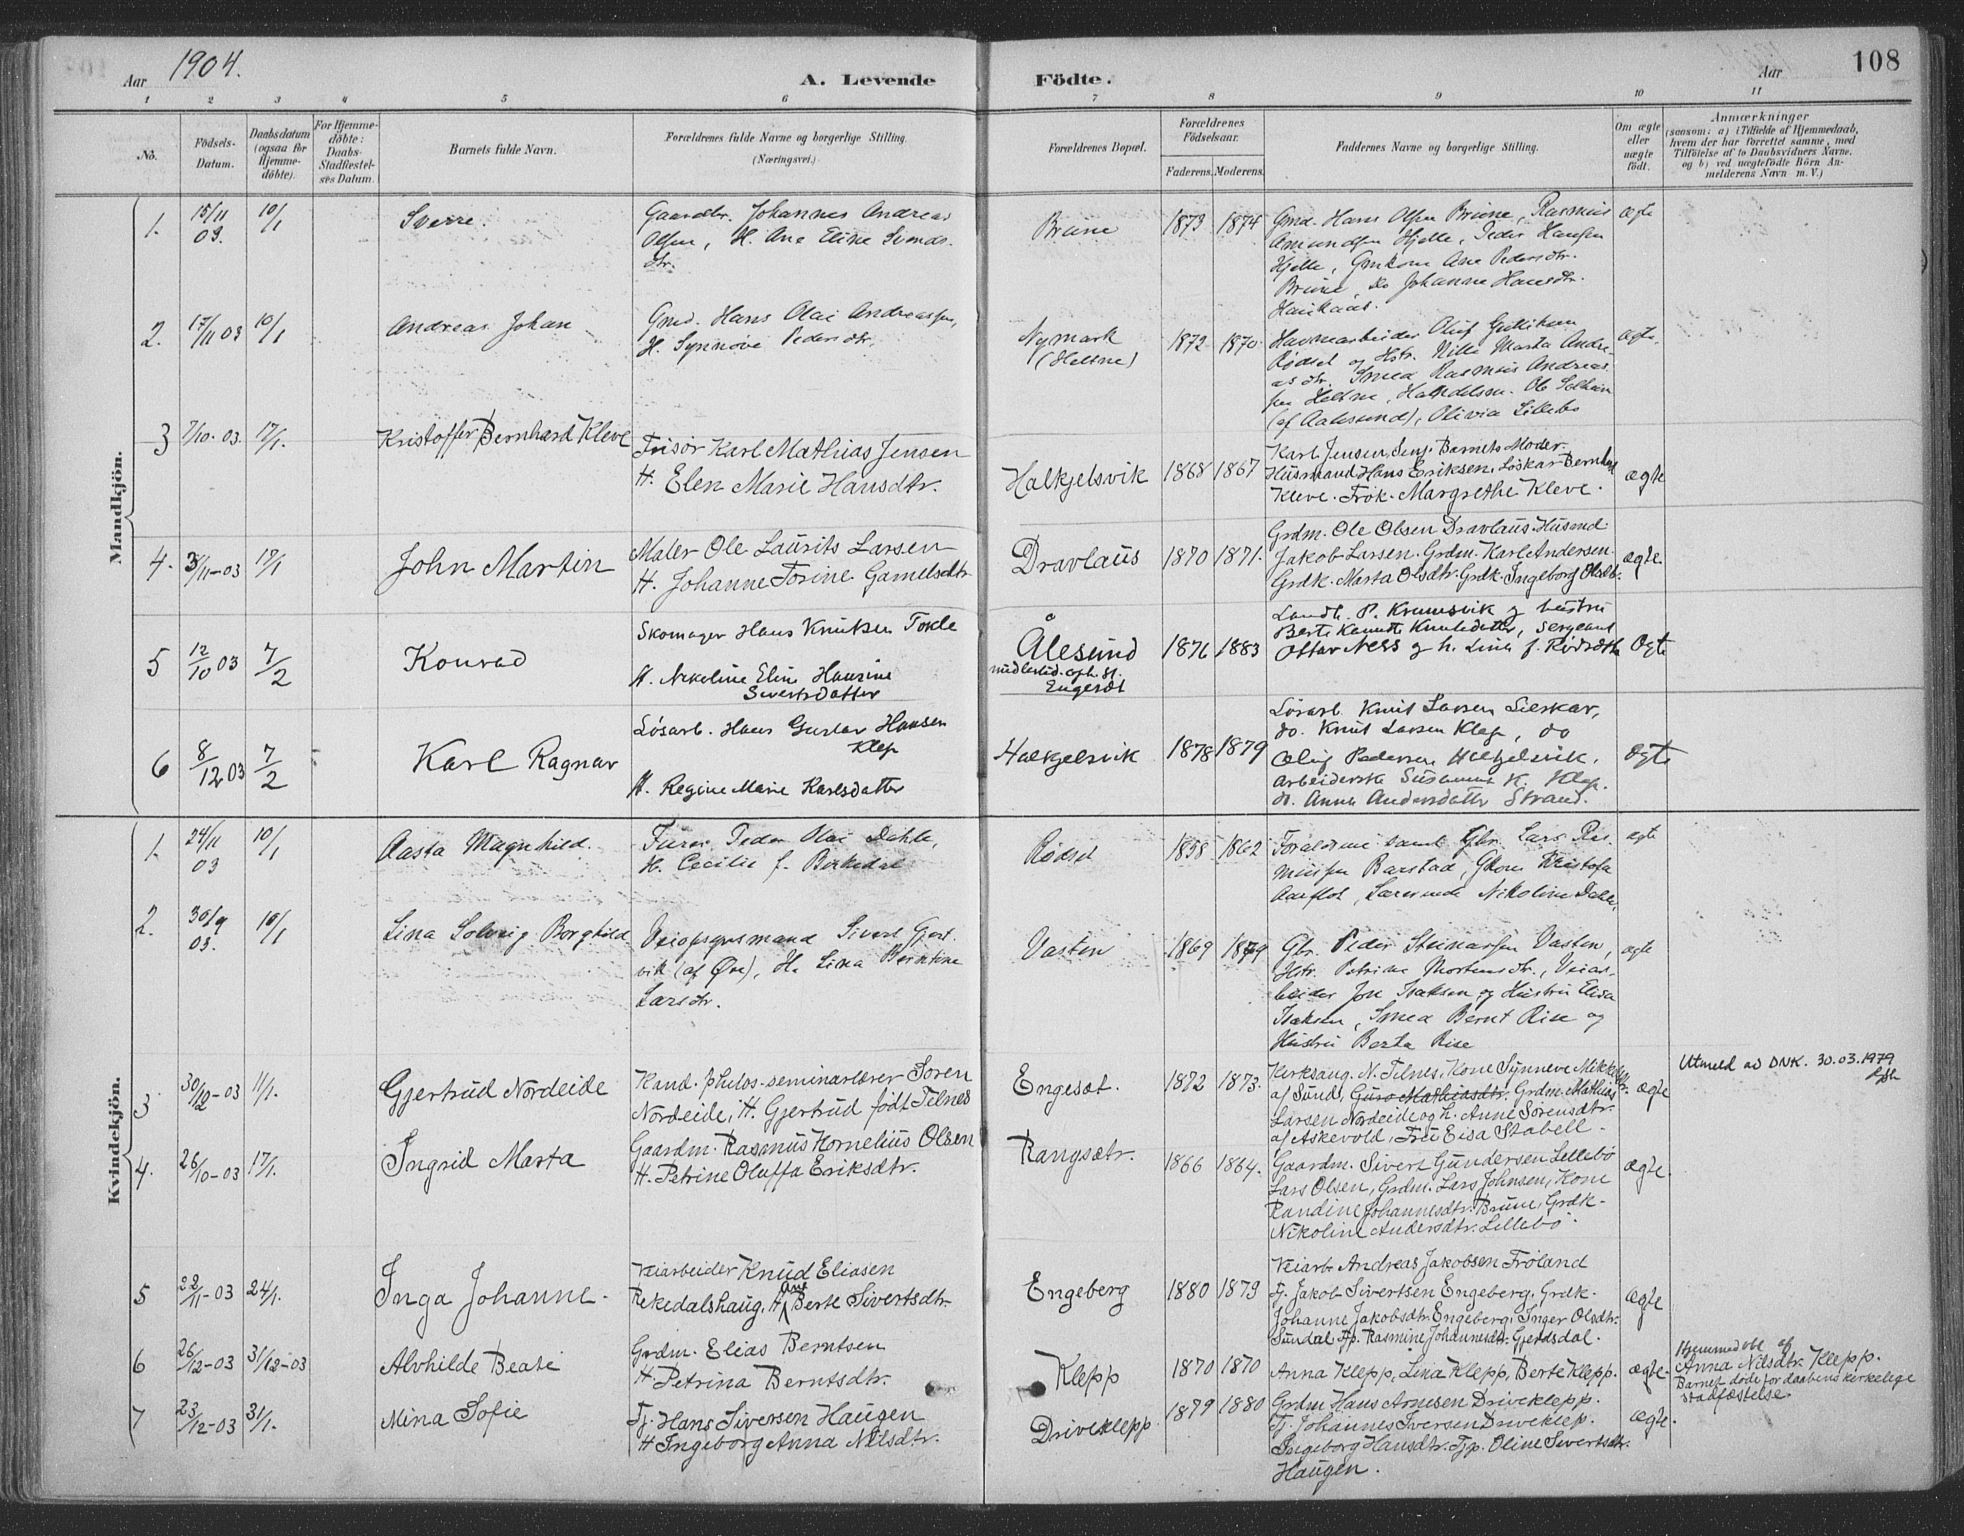 Aar 1904.
A. Levende
Födte.
Aar
108
1 2 3 4 5 6 7 8 9 10 11
No.
Födsels-
Datum.
Daabsdatum
(ogsaa for
Hjemme-
döbte).
For Hjemme-
döbte:
Daabs-
Stadfæstel-
ses Datum.
Barnets fulde Navn.
Forældrenes fulde Navne og borgerlige Stilling.
(Næringsvei.)
Forældrenes Bopæl.
Forældrenes
Födselsaar.
Faderens. Moderens.
Faddernes Navne og borgerlige Stilling.
Om ægte
eller
uægte
födt.
Anmærkninger
(saasom: a) i Tilfælde af Hjemmedaab,
hvem der har forrettet samme, med
Tilföielse af to Daabsvidners Navne.
og b) ved uægtefödte Börn An-
melderens Navn m. V.)
Mandkjön.
1. 15/11 03. 10/1
Sverre.
Gaardbr. Johannes Andreas
Olsen, H. Ane Eline Svends-
dtr.
Brune
1873 1874
Gmd. Hans Olsen Brune, Rasmus
Amundsen Hjelle, Peder Hansen
Hjelle, Gmkone Ane Pedersdtr.
Brune, do Johanne Hansdtr.
ægte
2. 17/11 03 10/1
Andreas Johan
Gmd. Hans Olai Andreassen,
H. Synnøve Pedersdtr.
Nymark
(Heltne)
1872 1870
Havnearbeider Oluf Gulliksen
Rødset og Hstr. Nille Marta Andre-
as dtr. Smed Rasmus Andreas
sen Heltne, Handelsm. Ole Solheim
(af Aalesund), Olivia Lillebø
ægte.
3 7/10-03. 17/1.
Kristoffer Bernhard Kleve
Frisör Karl Mathias Jensen
H. Elen Marie Hansdtr.
Halkjelsvik
1868 1867
Karl Jensen, Barnets Moder.
Husmand Hans Eriksen, Løskar Bernhard
Kleve. Frök. Margrethe Kleve.
ægte
4. 3/11-03 17/1
John Martin
Maler Ole Laurits Larsen
H. Johanne Torine Gamelsdtr
Dravlaus
1870 1871.
Grdm. Ole Olsen Dravlaus. Husmd.
Jakob Larsen. Grdm. Karl Andersen.
Grdk. Marta Olsdtr. Grdk. Ingeborg Olsdtr.
ægte.
5 12/10 03 7/2
Konrad
Skomager Hans Knutsen Tokle
H. Nikoline Elin Hansine
Sivertsdatter
Ålesund
midlertid. oph. st.
Engeset
1876 1883
Landh. P. Krumsvik og hustru
Berte Knutsdatter, Sergeant
Ottar Ness og h. Lina f. Rødseth
Ogte
6 8/12 03 7/2
Karl Ragnar
Løsarb. Hans Gustav Hansen
Klep
H. Regine Marie Karlsdatter
Halkjelsvik
1878 1879
Løsarb. Knut Larsen Lilskar,
do. Knut Larsen Klep, do
Oluf Pedersen Halkjelsvik,
Arbeiderske Susanna K. Klep.
do. Anna Andersdatter Strand.
Ogte
Kvindekjön.
1. 24/11 03 10/1
Aasta Magnhild.
Peder Olai Dahle,
H. Cecilie f. Birkedal
Rødset
1858 1862
Forældrene samt Gbr. Lars Ras-
mussen Barstad, Gkone Kristofa
Aarflot, Lærerinde Nikoline Dahle,
ægte
2. 30/9 03. 10/1
Lina Solveig Borghild
Veiopsynsmand Sivert Gjert-
vik (af Øre), H. Lina Berntine
Larsdtr.
Vasten
1869 1879
Gbr. Peder Steinarsen Vasten,
Hstr. Petrine Mortensdtr., Veiar-
beider Jon Isaksen og Hustru Elisa
Isaksen, Smed Bernt Rise og
Hustru Berta Rise
ægte
3 30/12-03 11/1.
Gjertrud Nordeide
Kand. philos-seminarlærer Sören
Nordeide, H. Gjertrud født Tilnes
Engesæt.
1872 1873.
Kirkesang. N. Tilnes, Kone Synneve Mikkelsdtr.
af Sund, Guro Mathiasdtr. Grdm. Mathias
Larsen Nordeide og h. Anne Sörensdtr.
af Askevold, Fru Eisa Stabell.
ægte
Utmeld av DNK. 30.03.1979
4. 26/10-03 17/1.
Ingrid Marta
Gaardm. Rasmus Kornelius Olsen
H. Petrine Oluffa Eriksdtr.
Rangsætr.
1866 1864.
Gaardm. Sivert Gundersen Lillebö
Lars Olsen, Grdm. Lars Johnsen, Kone
Randine Johannesdtr. Brune, Grdk.
Nikoline Andersdtr. Lillebö.
ægte.
5 22/11-03 24/1.
Inga Johanne.
Veiarbeider Knud Eliasen
Rekedalshaug, H. Ane Berte Sivertsdtr.
Engeberg
1880 1879
Veiarb. Andreas Jakobsen Fröland
Tj. Jakob Sivertsen Engeberg, Grdk.
Johanne Jakobsdtr. Engeberg, Inger Olsdtr.
Sundal, Tjp. Rasmine Johannesdtr. Gjerdsdal.
ægte
6 26/12-03 31/12-03
Alvhilde Beate
Grdm. Elias Berntsen
H. Petrina Berntsdtr.
Klepp
1870 1870
Anna Klepp, Lina Klepp, Berte Klepp.
ægte.
Hjemmedöbt af
Anna Nilsdtr. Klepp.
Barnet døde før daabens kirkelige
stadfæstelse
7 23/12-03 31/1.
Mina Sofie
Tj. Hans Siversen Haugen
H. Ingeborg Anna Nilsdtr.
Driveklepp
1879 1880
Grdm Hans Arnesen Driveklepp.
Tj. Johannes Iversen Driveklep.
Ingeborg Hansdtr. Tjp. Oline Sivertsdtr.
Haugen.
ægte.